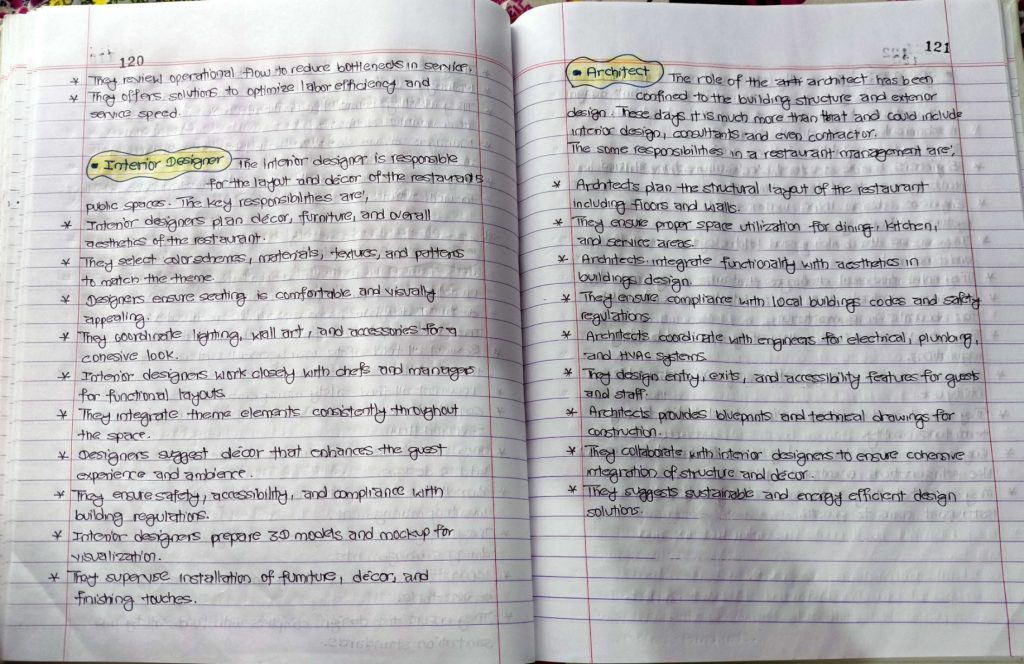 120
* They review operational flow to reduce bottlenecks in service.
* They offers solutions to optimize labor efficiency and
service speed.
• Interior Designer The interior designer is responsible
for the layout and décor of the restaurants
public spaces. The key responsibilities are',
* Interior designers plan décor, furniture, and overall
aesthetics of the restaurant.
* They select color schemes, materials, textures, and patterns
to match the theme.
* Designers ensure seating is comfortable and visually
appealing.
* They coordinate lighting, wall art, and accessories for a
cohesive look.
* Interior designers work closely with chefs and managers
for functional layouts
* They integrate theme elements consistently throughout
the space.
* Designers suggest décor that enhances the guest
experience and ambience.
* They ensure safety, accessibility, and compliance with
building regulations.
* Interior designers prepare 3D models and mockup for
visualization.
* They supervise installation of furniture, décor, and
finishing touches.
121
• Architect The role of the arh architect has been
confined to the building structure and exterior
design. These days it is much more than that and could include
interior design, consultants and even contractor.
The some responsibilities in a restaurant management are',
* Architects plan the structural layout of the restaurant
including floors and walls.
* They ensure proper space utilization for dining, kitchen,
and service areas.
* Architects integrate functionality with aesthetics in
buildings design.
* They ensure compliance with local buildings codes and safety
regulations
* Architects coordinate with engineers for electrical, plumbing,
and HVAC systems
* They design entry, exits, and accessibility features for guests
and staff.
* Architects provides blueprints and technical drawings for
construction.
* They collaborate with interior designers to ensure cohensive
integration of structure and décor.
* They suggests sustainable and energy efficient design
solutions.